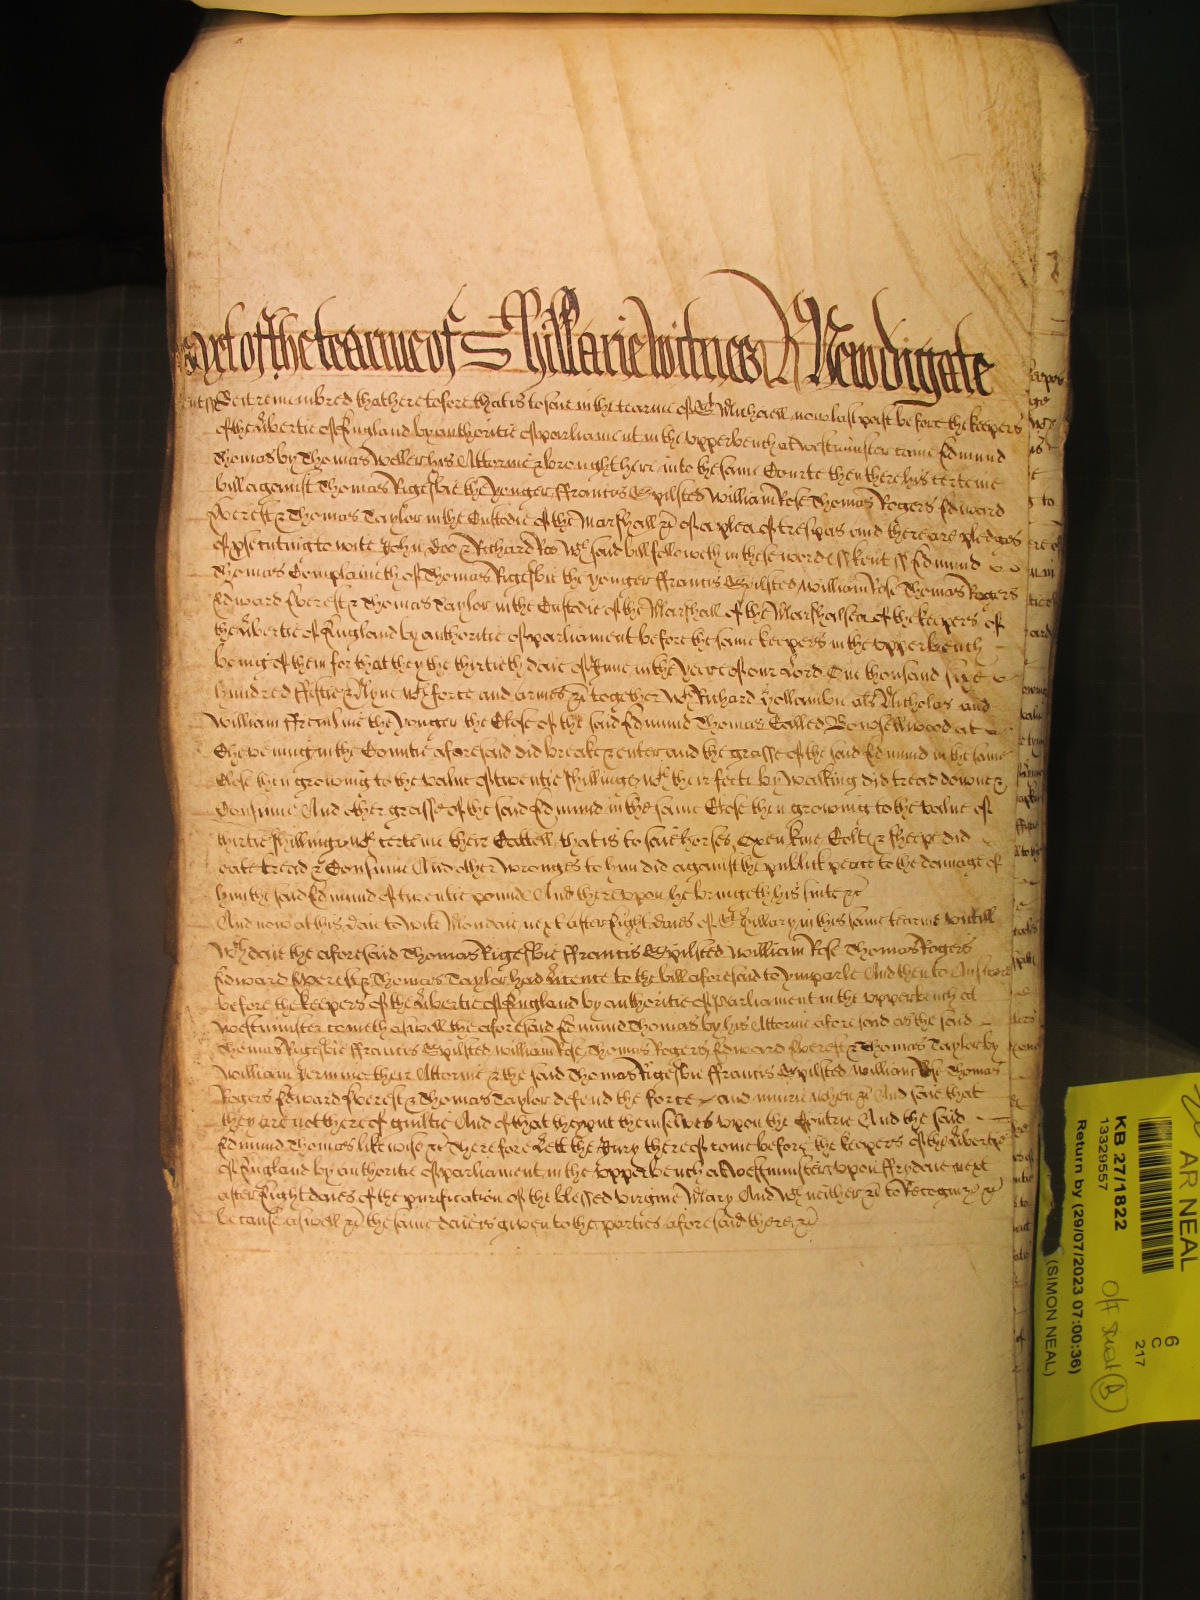 yet of the tearme of St hillarie witnes R Newdigate
Be it remembred that heretofore that is to saie in the tearme of St Michaell now last past before the keepers
of the libertie of England by authoritie of parliament in the upper bench at Westminster came Edmund
Thomas by Thomas Weller his Attorney & brought here into the same Courte then there his certeine
bill against Thomas Rigesbie the yonger ffrancis Spilsted William Rose Thomas Rogers Edward
Everest & Thomas Taylor in the Custodie of the Marshall &c of a plea of trespas and there are pledges
of prosecuting to wite John Doo & Richard Roo wch said bill followeth in these wordes ss kent ss Edmund
Thomas Complaineth of Thomas Rigesbie the yonger ffrancis Spilsted William Rose Thomas Rogers
Edward Everest & Thomas Taylor in the Custodie of the Marshall of the Marshalsea of the keepers of
the libertie of England by authoritie of parliament before the same keepers in the upper bench
being of them for that they the thirtieth daie of June in the yeare of our Lord One thousand sixe
hundred fiftie & Nyne wth force and armes &c together wth Richard als Nicholas and
William the yonger the Close of the said Edmund Thomas Called wood at
Chevening in the Countie aforesaid did breake & enter and the grasse of the said Edmund in the same
Close then growing to the value of twentie shillings wth their feete by walking did tread downe &
Consume And other grasse of the said Edmund in the same Close then growing to the value of
thirtie shillings wth certeine their Cattell that is to saie horses Oxen kine Colts & sheepe did
eate tread & Consume And other wronges to him did against the publick peace to the damage of
him the said Edmund of twentie pounds And thereupon he bringeth his suite &c
And now at this daie to wite Mondaie next after Eight daies of St hillary in this same tearme untill
wch daie the aforesaid Thomas Rigesbie ffrancis Spilsted William Rose Thomas Rogers
Edward Everest & Thomas Taylor had licence to the bill aforesaid to ymparle And then to Answere
before the keepers of the libertie of England by authoritie of parliament in the upper bench at
Westminster cometh aswell the aforesaid Edmund Thomas by his Attorney aforesaid as the said
Thomas Rigesbie ffrancis Spilsted William Rose Thomas Rogers Edward Everest & Thomas Taylor by
William their Attorney & the said Thomas Rigesbie ffrancis Spilsted William Rose Thomas
Rogers Edward Everest & Thomas Taylor defend the force and iniurie when &c And saie that
they are not thereof guiltie And of that they put themselves upon the Contrie And the said
Edmund Thomas likewise &c Therefore Lett the Jury thereof come before the keepers of the libertie
of England by authoritie of parliament in the upper bench at Westminster upon ffrydaie next
after Eight daies of the purification of the blessed virgine Mary And wch neither &c to Recognize &c
because aswell &c the same daie is given to the parties aforesaid there &c
AR NEAL
KB 27/1822
13329557
Return by (29/07/2023 07:00:36)
(SIMON NEAL)
6
C
217